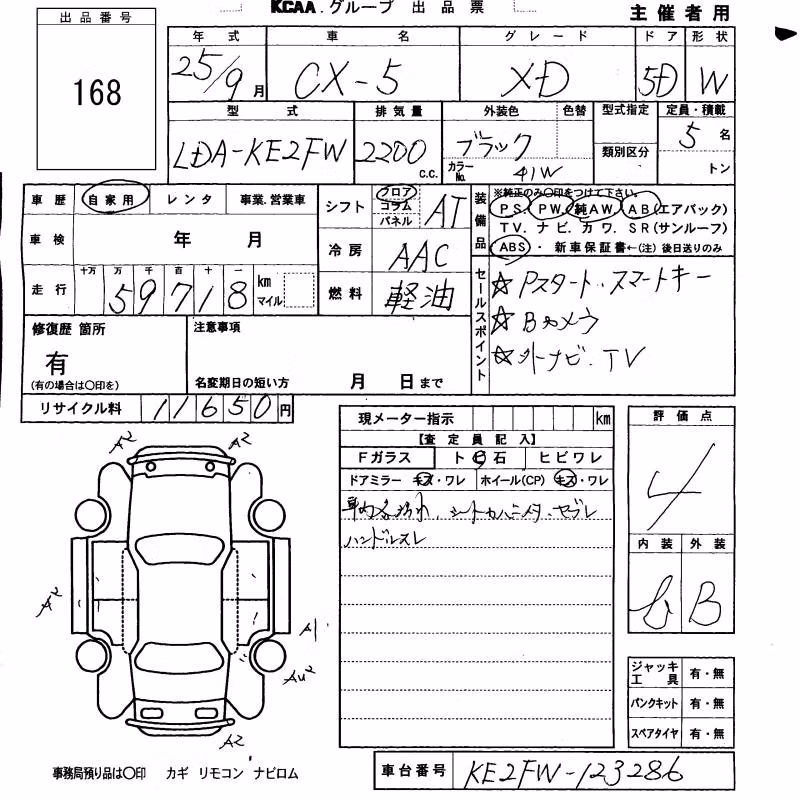 KCAA.グループ 出品票 主催者用
出品番号
168
年式 車名 グレード ドア 形状
25/9月 CX-5 XD 5D W
型式 排気量 外装色 色替 型式指定 定員・積載
LDA-KE2FW 2200 c.c. ブラック カラーNo. 41W 類別区分 5名 トン
車歴 自家用 レンタ 事業.営業車
シフト フロア コラム パネル AT
装備品 ※純正のみ〇印をつけて下さい。
PS. PW. 純AW. AB(エアバック)
TV. ナビ. カワ. SR(サンルーフ)
ABS ・ 新車保証書←(注)後日送りのみ
車検 年 月
冷房 AAC
走行 十万 万 千 百 十 一 km マイル
59718
燃料 軽油
セールスポイント
☆Pスタート.スマートキー
☆Bカメラ
☆外ナビ.TV
修復歴 箇所
有
(有の場合は〇印を)
注意事項
名変期日の短い方 月 日まで
リサイクル料 11650円
現メーター指示 km
【査定員記入】
Fガラス ト ビ 石 ヒビワレ
ドアミラー キズ・ワレ ホイール(CP) キズ・ワレ
ハンドルスレ
評価点
4
内装 外装
B
A2 A2
A2
A1
AU2
A2
ジャッキ工具 有・無
パンクキット 有・無
スペアタイヤ 有・無
事務局預り品は〇印 カギ リモコン ナビロム
車台番号 KE2FW-123286